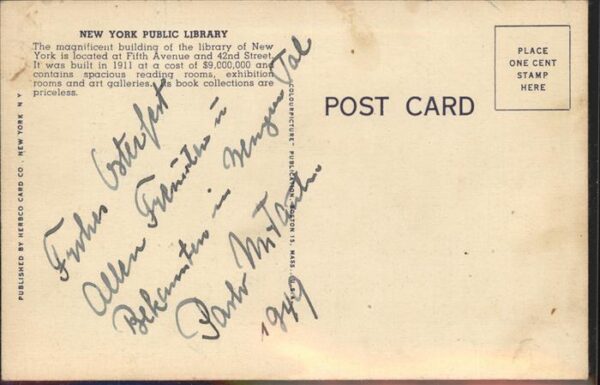 NEW YORK PUBLIC LIBRARY
The magnificent building of the library of New
York is located at Fifth Avenue and 42nd Street.
It was built in 1911 at a cost of $9,000,000 and
contains spacious reading rooms, exhibition
rooms and art galleries. Its book collections are
priceless.
PUBLISHED BY HERBCO CARD CO. NEW YORK N Y
Frohes Osterfest
Allen Freunden u
Bekannten in
1949
"COLOURPICTURE" PUBLICATION BOSTON 15, MASS.
POST CARD
PLACE
ONE CENT
STAMP
HERE